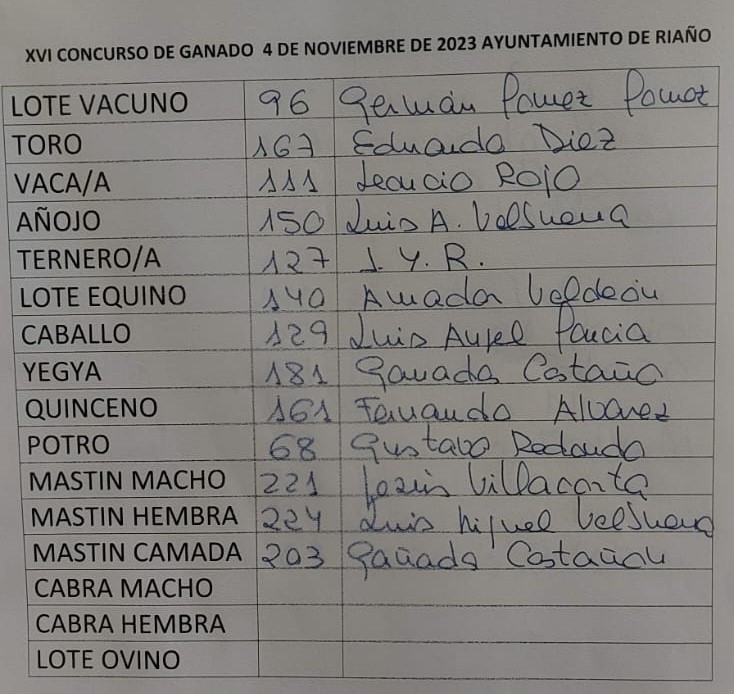 XVI CONCURSO DE GANADO 4 DE NOVIEMBRE DE 2023 AYUNTAMIENTO DE RIAÑO
LOTE VACUNO 96 Germán
TORO 167 Eduardo Diez
VACA/A 111 Leoncio Rojo
AÑOJO 150 Luis A. Valbuena
TERNERO/A 127 J. Y. R.
LOTE EQUINO 140 Amador Valdeón
CABALLO 129 Luis Angel
YEGYA 181 Castaño
QUINCENO 161 Fernando Alvarez
POTRO 68 Gustavo Redondo
MASTIN MACHO 221 Jesús Villacorta
MASTIN HEMBRA 224 Luis Miguel Valbuena
MASTIN CAMADA 203
CABRA MACHO
CABRA HEMBRA
LOTE OVINO